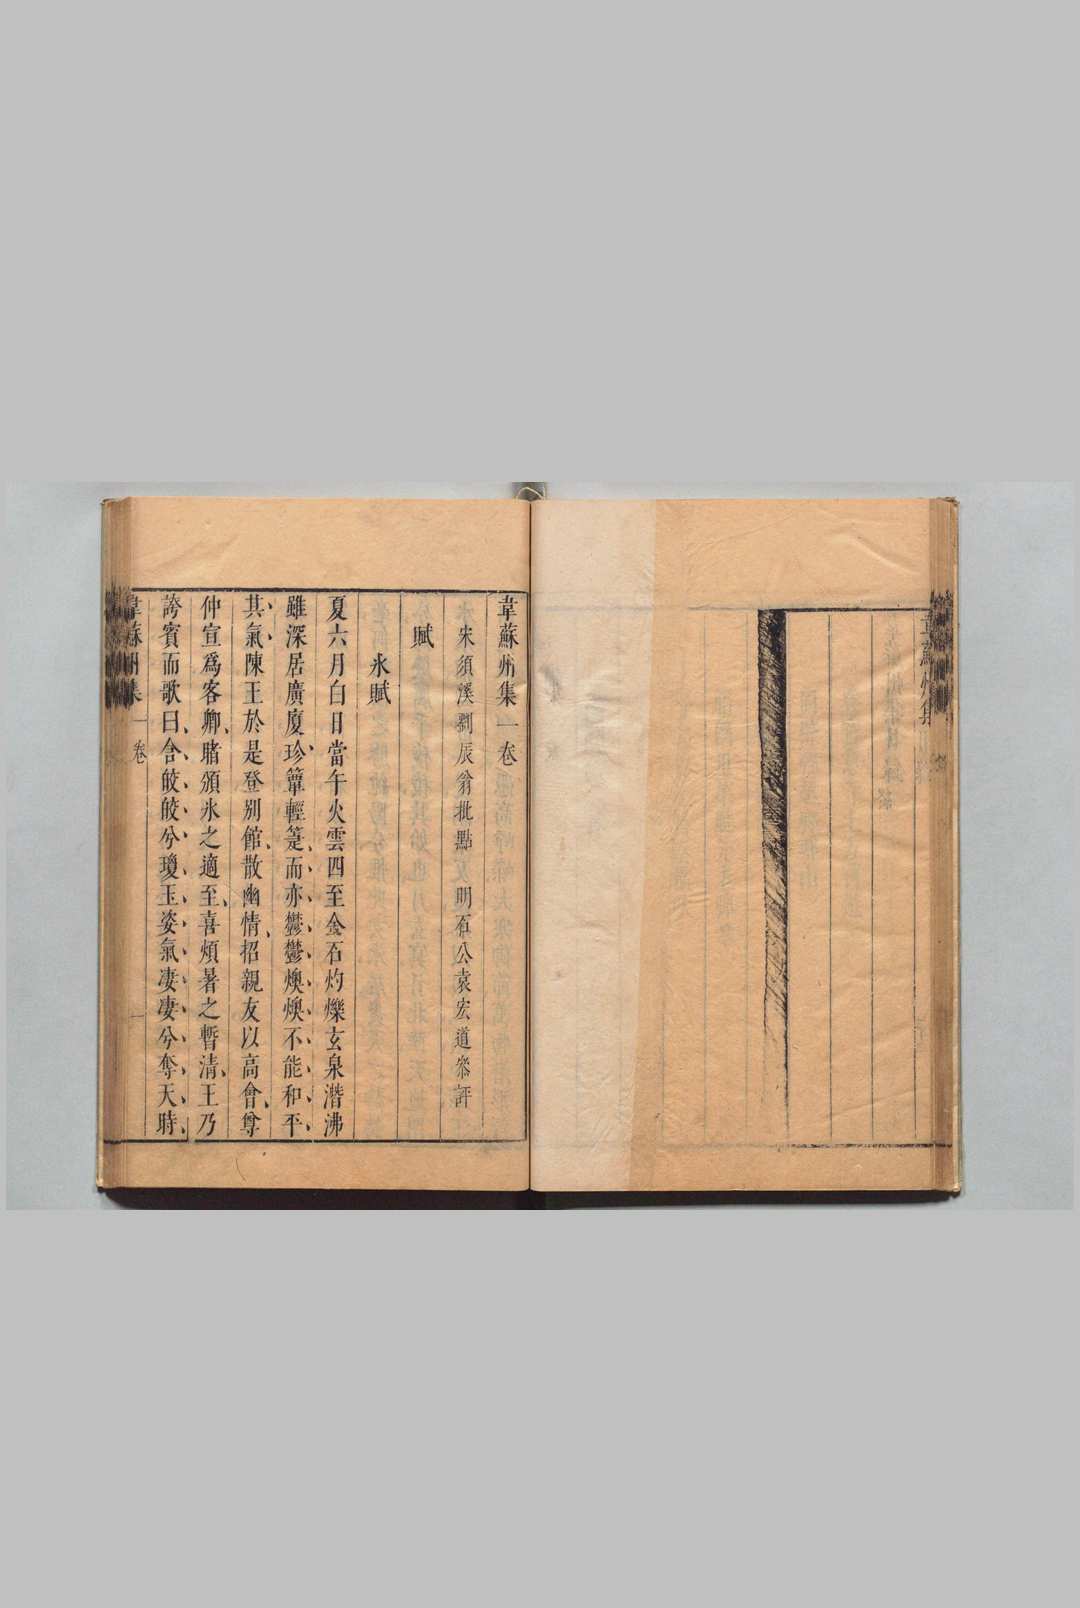 韋蘇州集
韋蘇州集一卷
宋須溪劉辰翁批點 明石公袁宏道參評
賦
氷賦
夏六月白日當午火雲四至金石灼爍玄泉潛沸
雖深居廣廈珍簟輕箑而亦鬱鬱燠燠不能和平
其氣陳王於是登別館散幽情招親友以高會尊
仲宣爲客卿賭頒氷之適至喜煩暑之暫清王乃
誇賓而歌曰含皎皎兮瓊玉姿氣凄凄兮奪天時
韋蘇州集 一卷 一